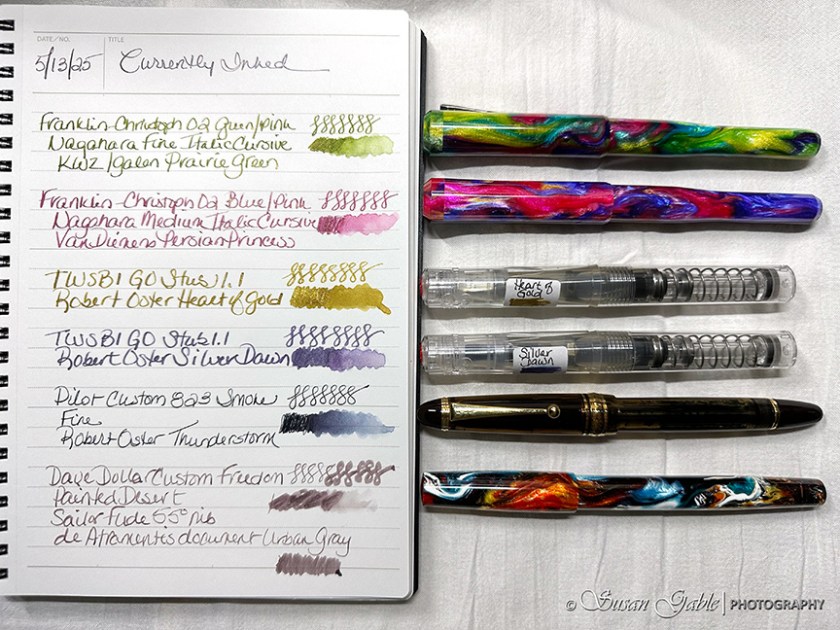 DATE/NO.
TITLE
5/13/25 Currently Inked
Franklin-Christoph 02 Green/Pink
Nagahara Fine Italic Cursive
KWZ/Galen Prairie Green
Franklin-Christoph 02 Blue/Pink
Nagahara Medium Italic Cursive
Van Dienens Persian Princess
TWSBI GO Stub 1.1
Robert Oster Heart of Gold
TWSBI GO Stub 1.1
Robert Oster Silver Dawn
Pilot Custom 823 Smoke
Fine
Robert Oster Thunderstorm
Dave Dollar Custom Freedom
Painted Desert
Sailor Fude 55° nib
de Atramentes document Urban Gray
Heart of
Gold
Silver
Dawn
© Susan Gable | PHOTOGRAPHY